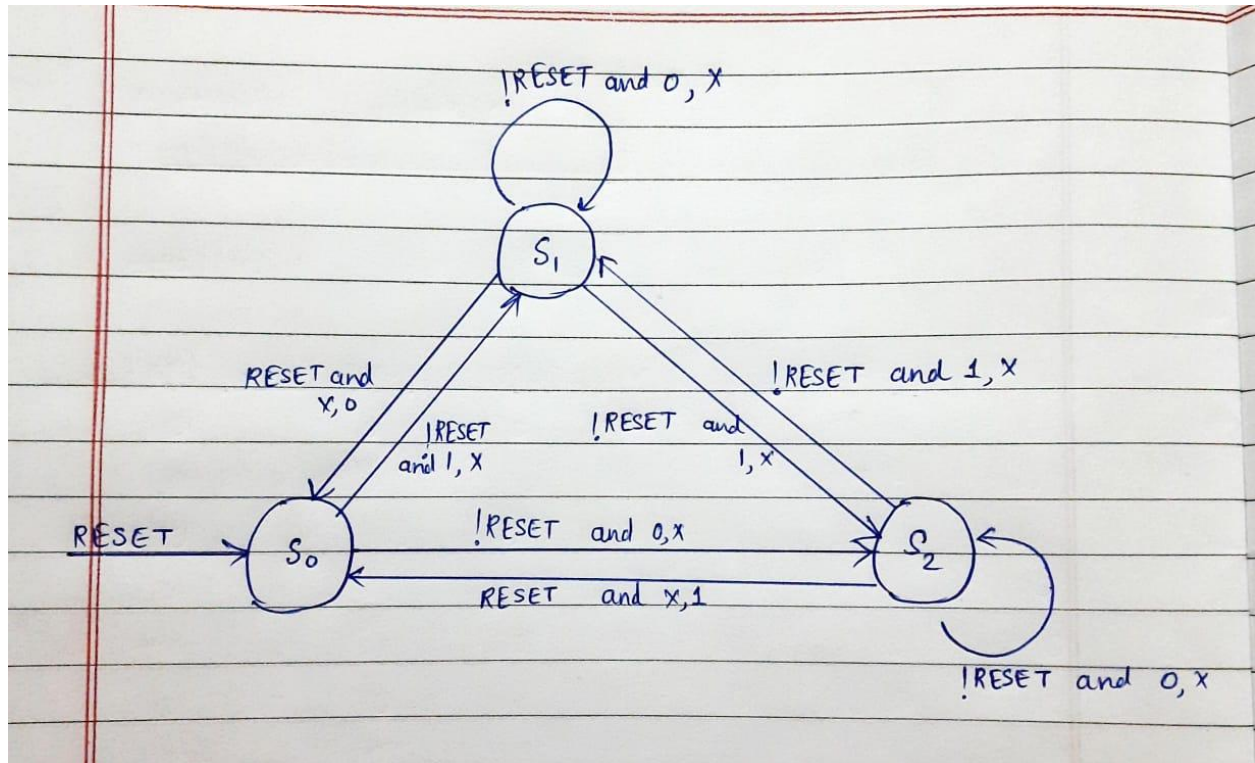 !RESET and 0, X
S1
RESET and
X,0
!RESET and 1, X
!RESET
and 1, X
!RESET and
1, X
RESET
S0
!RESET and 0,X
S2
RESET and X,1
!RESET and 0, X